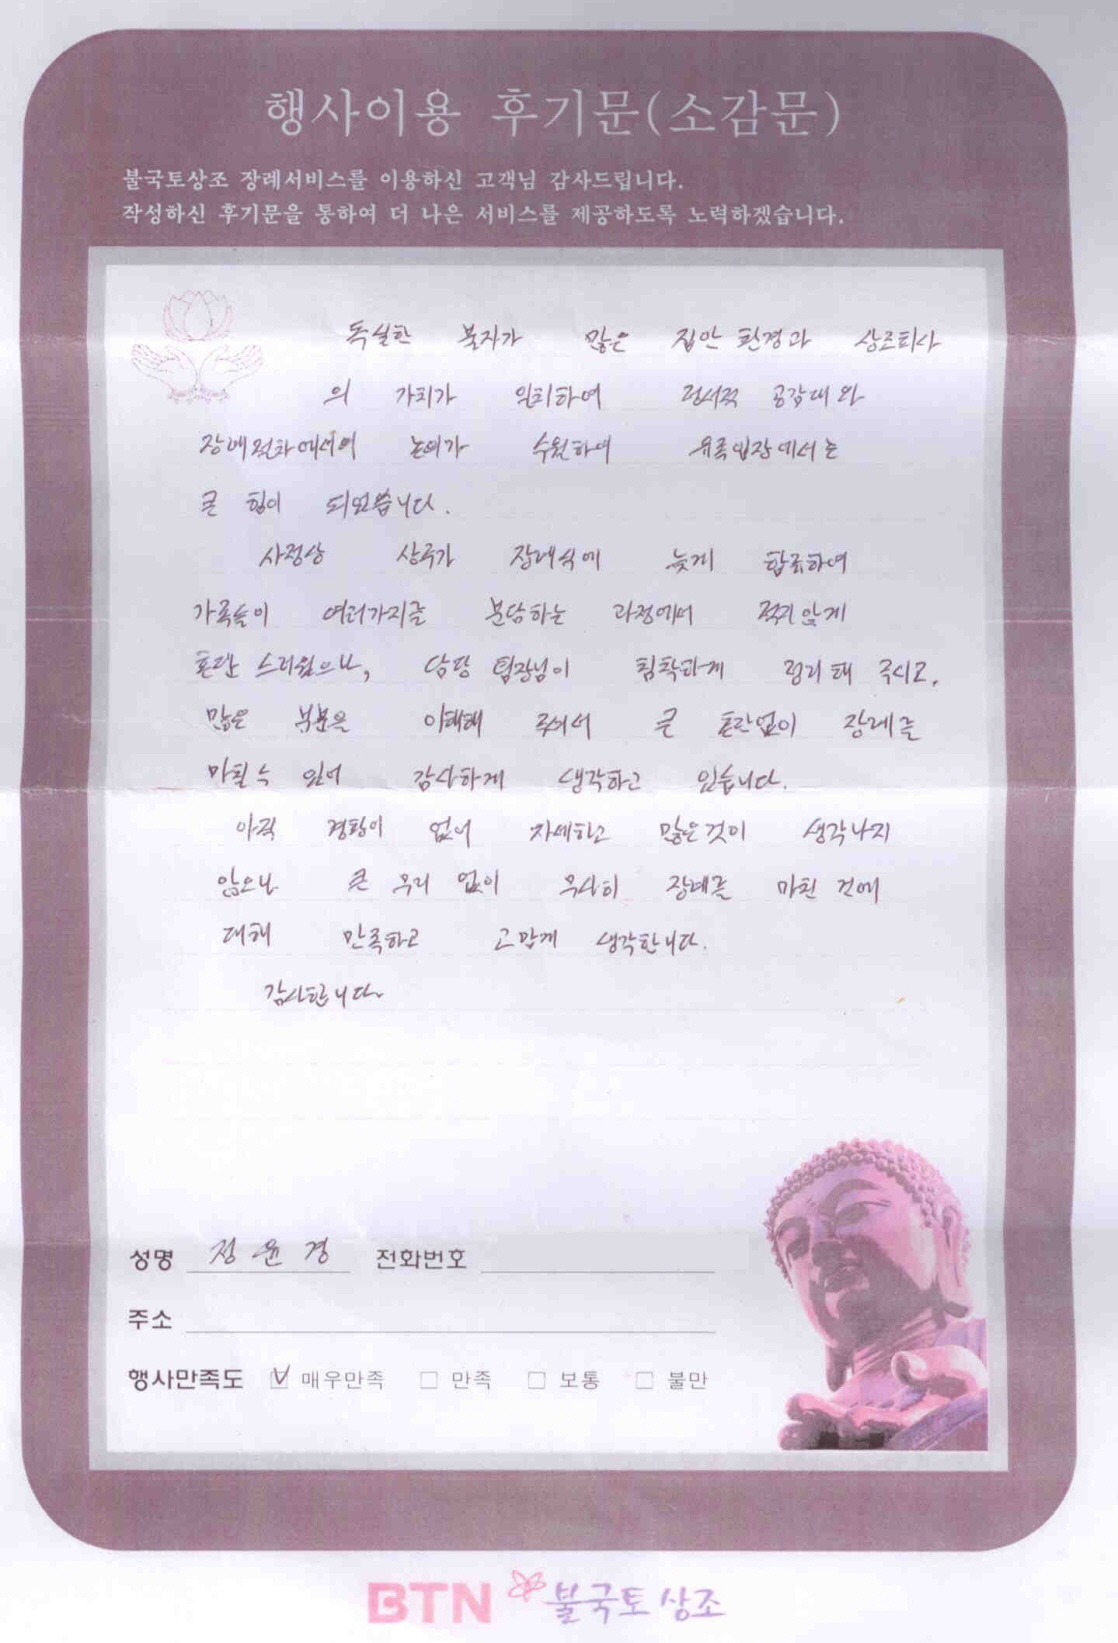 행사이용 후기문(소감문)
불국토상조 장례서비스를 이용하신 고객님 감사드립니다.
작성하신 후기문을 통하여 더 나은 서비스를 제공하도록 노력하겠습니다.
독실한 불자가 많은 집안 환경과 상조회사
의 가치가 일치하여 정서적 공감대와
장례절차에서의 논의가 수월하여 유족입장에서는
큰 힘이 되었습니다.
사정상 상주가 장례식에 늦게 합류하여
가족들이 여러가지를 분담하는 과정에서 적지 않게
혼란 스러웠으나, 담당 팀장님이 침착하게 정리해 주시고,
많은 부분을 이해해 주셔서 큰 혼란없이 장례를
마칠 수 있어 감사하게 생각하고 있습니다.
아직 경황이 없어 자세하고 많은것이 생각나지
않으나 큰 무리 없이 무사히 장례를 마친 것에
대해 만족하고 고맙게 생각합니다.
감사합니다
성명 정윤경 전화번호
주소
행사만족도 매우만족 만족 보통 불만
BTN 불국토상조